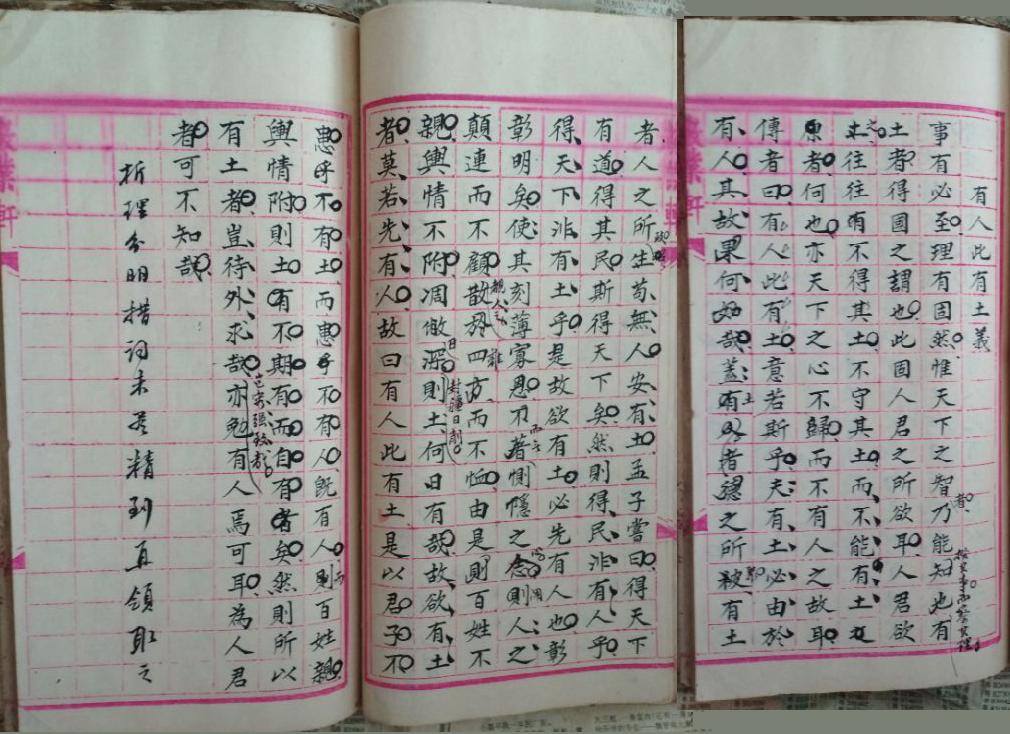 有人此有土義
事有必至理有固然惟天下之智乃能知也有
土者得國之謂也此固人君之所欲耳人君欲
土往往有不得其土不守其土而不能有土
者何也亦天下之心不歸而不有人之故耳
傳者曰有人此有土意若斯乎夫有土必由於
有人其故果何如哉蓋有人者德之所被有土
者人之所生苟無人安有土孟子嘗曰得天下
有道得其民斯得天下矣然則得民非有人乎
得天下非有土乎是故欲有土必先有人也彰
彰明矣使其刻薄寡恩不著惻隱之念則人之
顛連而不顧散於四方而不恤由是則百姓不
親輿情不附凋敝日深則土何日有哉故欲有土
者莫若先有人故曰有人此有土是以君子不
患乎不有土而患乎不有人既百人則百姓親
輿情附則土有不期有而自有者矣然則所以
有土者豈待外求哉亦勉有人焉可耳為人君
者可不知哉
析理分明措詞未甚精到再領取之